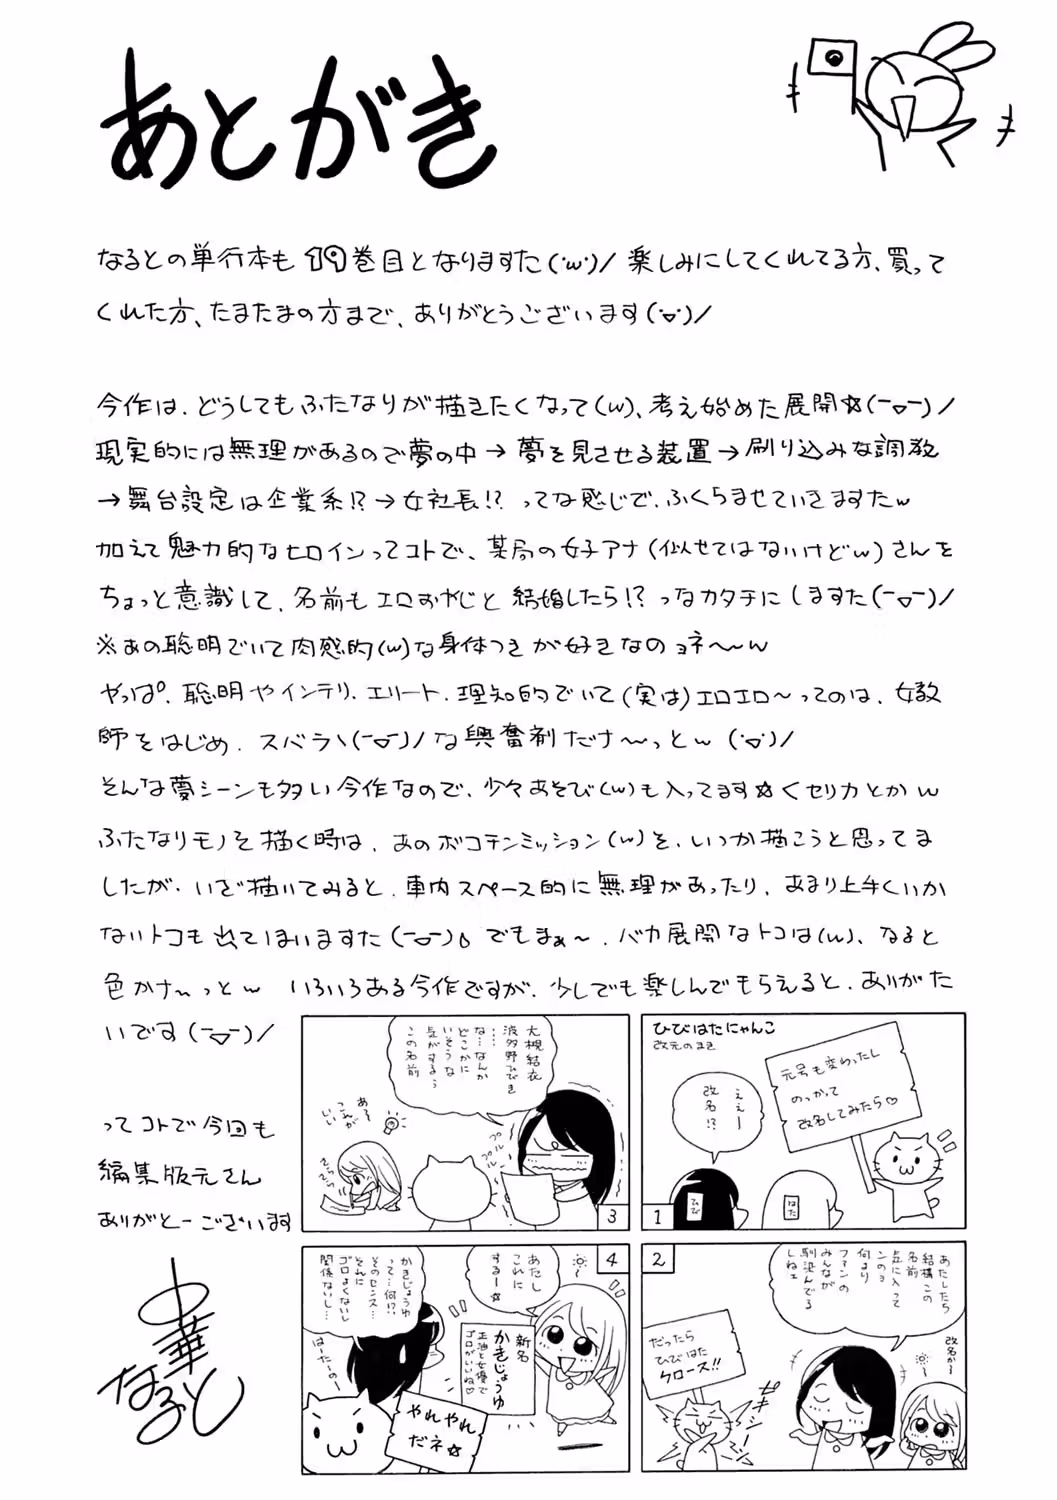 あとがき
なるとの単行本も19巻目となりますた(･ω･)/ 楽しみにしてくれてる方、買って
くれた方、たまたまの方まで、ありがとうございます(･▽･)/
今作は、どうしてもふたなりが描きたくなって(w)、考え始めた展開☆(ー▽ー)/
現実的には無理があるので夢の中→夢を見させる装置→刷り込みな調教
→舞台設定は企業系!?→女社長!? ってな感じで、ふくらませていきますたw
加えて魅力的なヒロインってコトで、某局の女子アナ(似せてはないけどw)さんを
ちょっと意識して、名前もエロおやじと結婚したら!? っなカタチにしますた(ー▽ー)/
※あの聡明でいて肉感的(w)な身体つきが好きなのョネ〜〜w
やっぱ、聡明やインテリ、エリート、理知的でいて(実は)エロエロ〜ってのは、女教
師をはじめ、スバラヽ(ー▽ー)/な興奮剤だナ〜っとw (･▽･)/
そんな夢シーンも多い今作なので、少々あそび(w)も入ってます☆くセリカとかw
ふたなりモノを描く時は、あのボコチンミッション(w)を、いつか描こうと思ってま
したが、いざ描いてみると、車内スペース的に無理があったり、あまり上手くいか
ないトコも出てしまいますた(ー▽ー)。でもまぁ〜、バカ展開なトコは(w)、なると
色かナ〜っとw いろいろある今作ですが、少しでも楽しんでもらえると、ありがた
いです(ー▽ー)/
ってコトで今回も
編集版元さん
ありがとーございます
中華
なると
ひびはたにゃんこ
改元のまき
元号も変わったし
のっかって
改名してみたら♡
ええー
改名!?
ひび
はた
1
あたしたち
結構この
名前
気に入って
ンのョ
何より
ファンの
みんなが
馴染んでる
しねェ
改名かー
だったら
ひびはた
クロース!!
2
大槻結衣
波多野ひびき
……
な…なんか
どこかに
いそうな
気がするぅ
この名前
プルプル
プルプル
ある
こんが
いい
さらさら
3
あたし
これに
するー☆
新名
かきじょうゆ
正油と女優で
ゴロがいいね♡
かきじょうゆ
って…何!?
そのセンス…
それに
ゴロよくないし
関係ないし…
はーたぃのー
やれやれ
だネ☆
4